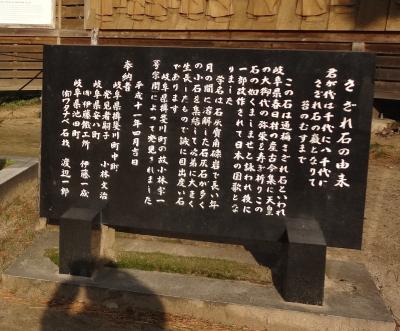 さざれ石の由来
君が代は千代に八千代に
さざれ石の巌となりて
苔のむすまで
この石は通稱さざれ石といわれ
岐阜県春日村の産古今集に天皇
の御代の弥栄を寿ぎ祈りこの
石の如くましませと詠われ後に
一部改作されて日本の国歌とな
りました
学名は石灰質角礫岩で長い年
月の間に溶解した石灰石が多く
の小石を集結して次第に大きく
生長したもので誠に目出度い石
であります
岐阜県揖斐川町の故小林宗一
氏によって発見されました
平成十一年四月吉日
奉納者
岐阜県揖斐川町中町
発見者嗣子 小林文治
岐阜県安八町
㈲伊藤鐵工所 伊藤一成
岐阜県池田町
㈲ワタナベ石材 渡辺一郎